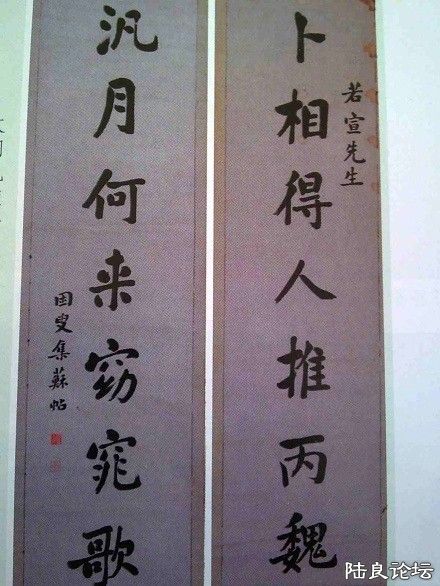 卜相得人推丙魏
若宣先生
汎月何来窈窕歌
困叟集蘇帖
陆良论坛